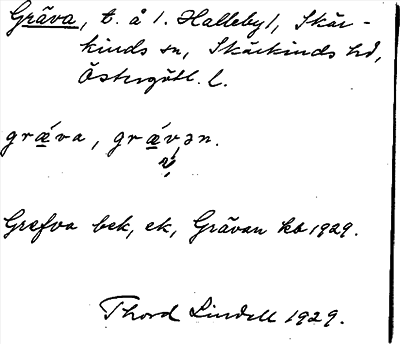 Gräva, t. å /. Halleby/, Skär-
kinds sn, Skärkinds hd,
Östergötl. l.
græ´va, græ´vən.
Grefva bek, ek, Grävan kb 1929.
Thord Lindell 1929.